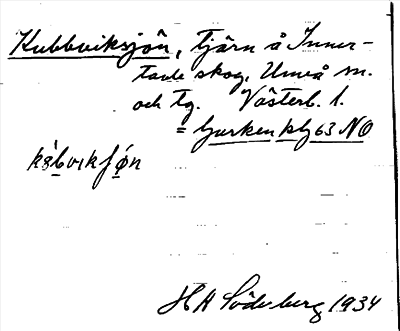 Kubbviksjön, tjärn å Inner-
tavle skog, Umeå m.
och tg. Västerb. l.
= Gurken blg 63 NO
HA Söderberg 1934